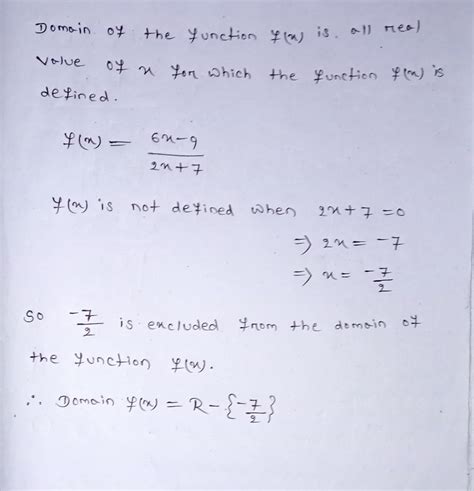 Domain of the function f(x) is all real
value of x for which the function f(x) is
defined.
f(x) = (6x-9)/(2x+7)
f(x) is not defined when 2x+7=0
⇒ 2x = -7
⇒ x = -7/2
So -7/2 is excluded from the domain of
the function f(x).
∴ Domain f(x) = R-{-7/2}